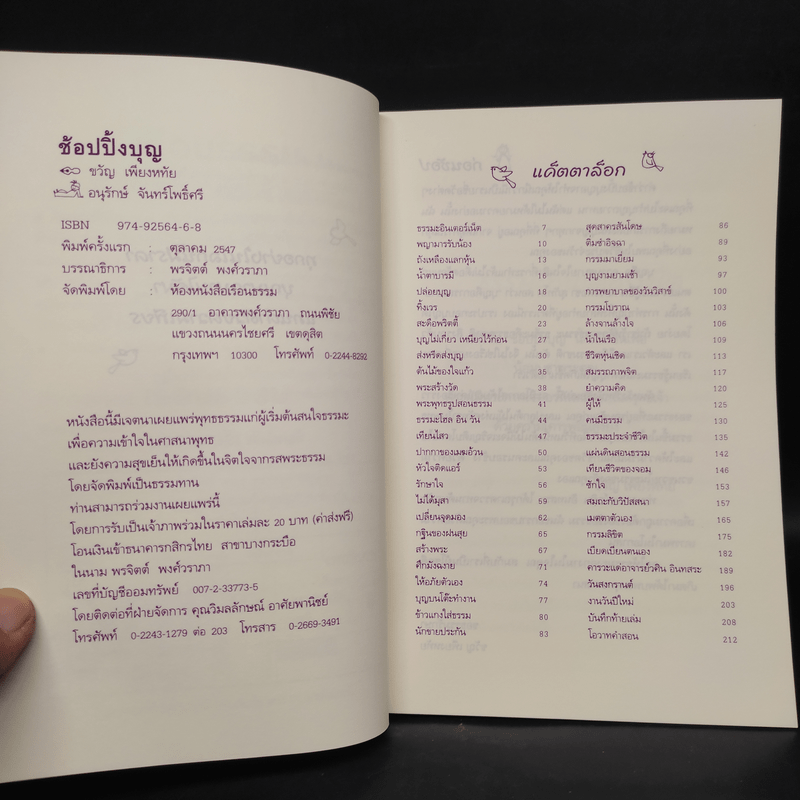 ช้อปปิ้งบุญ
ขวัญ เพียงหทัย
อนุรักษ์ จันทร์โพธิ์ศรี
ISBN 974-92564-6-8
พิมพ์ครั้งแรก : ตุลาคม 2547
บรรณาธิการ : พรจิตต์ พงศ์วราภา
จัดพิมพ์โดย : ห้องหนังสือเรือนธรรม
290/1 อาคารพงศ์วราภา ถนนพิชัย
แขวงถนนนครไชยศรี เขตดุสิต
กรุงเทพฯ 10300 โทรศัพท์ 0-2244-8292
หนังสือนี้มีเจตนาเผยแพร่พุทธธรรมแก่ผู้เริ่มต้นสนใจธรรมะ
เพื่อความเข้าใจในศาสนาพุทธ
และยังความสุขเย็นให้เกิดขึ้นในจิตใจจากรสพระธรรม
โดยจัดพิมพ์เป็นธรรมทาน
ท่านสามารถร่วมงานเผยแพร่นี้
โดยการรับเป็นเจ้าภาพร่วมในราคาเล่มละ 20 บาท (ค่าส่งฟรี)
โอนเงินเข้าธนาคารกสิกรไทย สาขาบางกระบือ
ในนาม พรจิตต์ พงศ์วราภา
เลขที่บัญชีออมทรัพย์ 007-2-33773-5
โดยติดต่อที่ฝ่ายจัดการ คุณวิมลลักษณ์ อาศัยพานิชย์
โทรศัพท์ 0-2243-1279 ต่อ 203 โทรสาร 0-2669-3491
แค็ตตาล็อก
ธรรมะอินเตอร์เน็ต 7
พญามารรับน้อง 10
ถังเหลืองแลกหุ้น 13
น้ำตาบารมี 16
ปล่อยบุญ 18
ทิ้งเวร 20
สะดือพริตตี้ 23
บุญไม่เกี่ยว เหนียวไว้ก่อน 27
ส่งหรีดส่งบุญ 30
ต้นไม้ของใจแก้ว 35
พระสร้างวัด 38
พระพุทธรูปสอนธรรม 41
ธรรมะโฮล อิน วัน 44
เทียนไสว 47
ปากกาของเมฆอ้วน 50
หัวใจติดแอร์ 53
รักษาใจ 56
ไม่ได้มุสา 59
เปลี่ยนจุดมอง 62
กฐินของฝนสุย 65
สร้างพระ 67
ศึกมังฉงาย 71
ให้อภัยตัวเอง 74
บุญบนโต๊ะทำงาน 77
ข้าวแกงใส่ธรรม 80
นักขายประกัน 83
สุดสาครสันโดษ 86
ติ่มซำอิจฉา 89
กรรมมาเยี่ยม 93
บุญงามยามเช้า 97
การพยาบาลของวันวิสาข์ 100
กรรมโบราณ 103
ล้างจานล้างใจ 106
น้ำในเรือ 109
ชีวิตหุ่นเชิด 113
สมรรถภาพจิต 117
ยำความคิด 120
ผู้ให้ 125
คนมีธรรม 130
ธรรมะประจำชีวิต 135
แผ่นดินสอนธรรม 142
เทียนชีวิตของจอม 146
ซักใจ 153
สมถะกับวิปัสสนา 157
เมตตาตัวเอง 165
กรรมลิขิต 175
เบียดเบียนตนเอง 182
คารวะแด่อาจารย์วศิน อินทสระ 189
วันสงกรานต์ 196
งานวันปีใหม่ 203
บันทึกท้ายเล่ม 208
โอวาทคำสอน 212